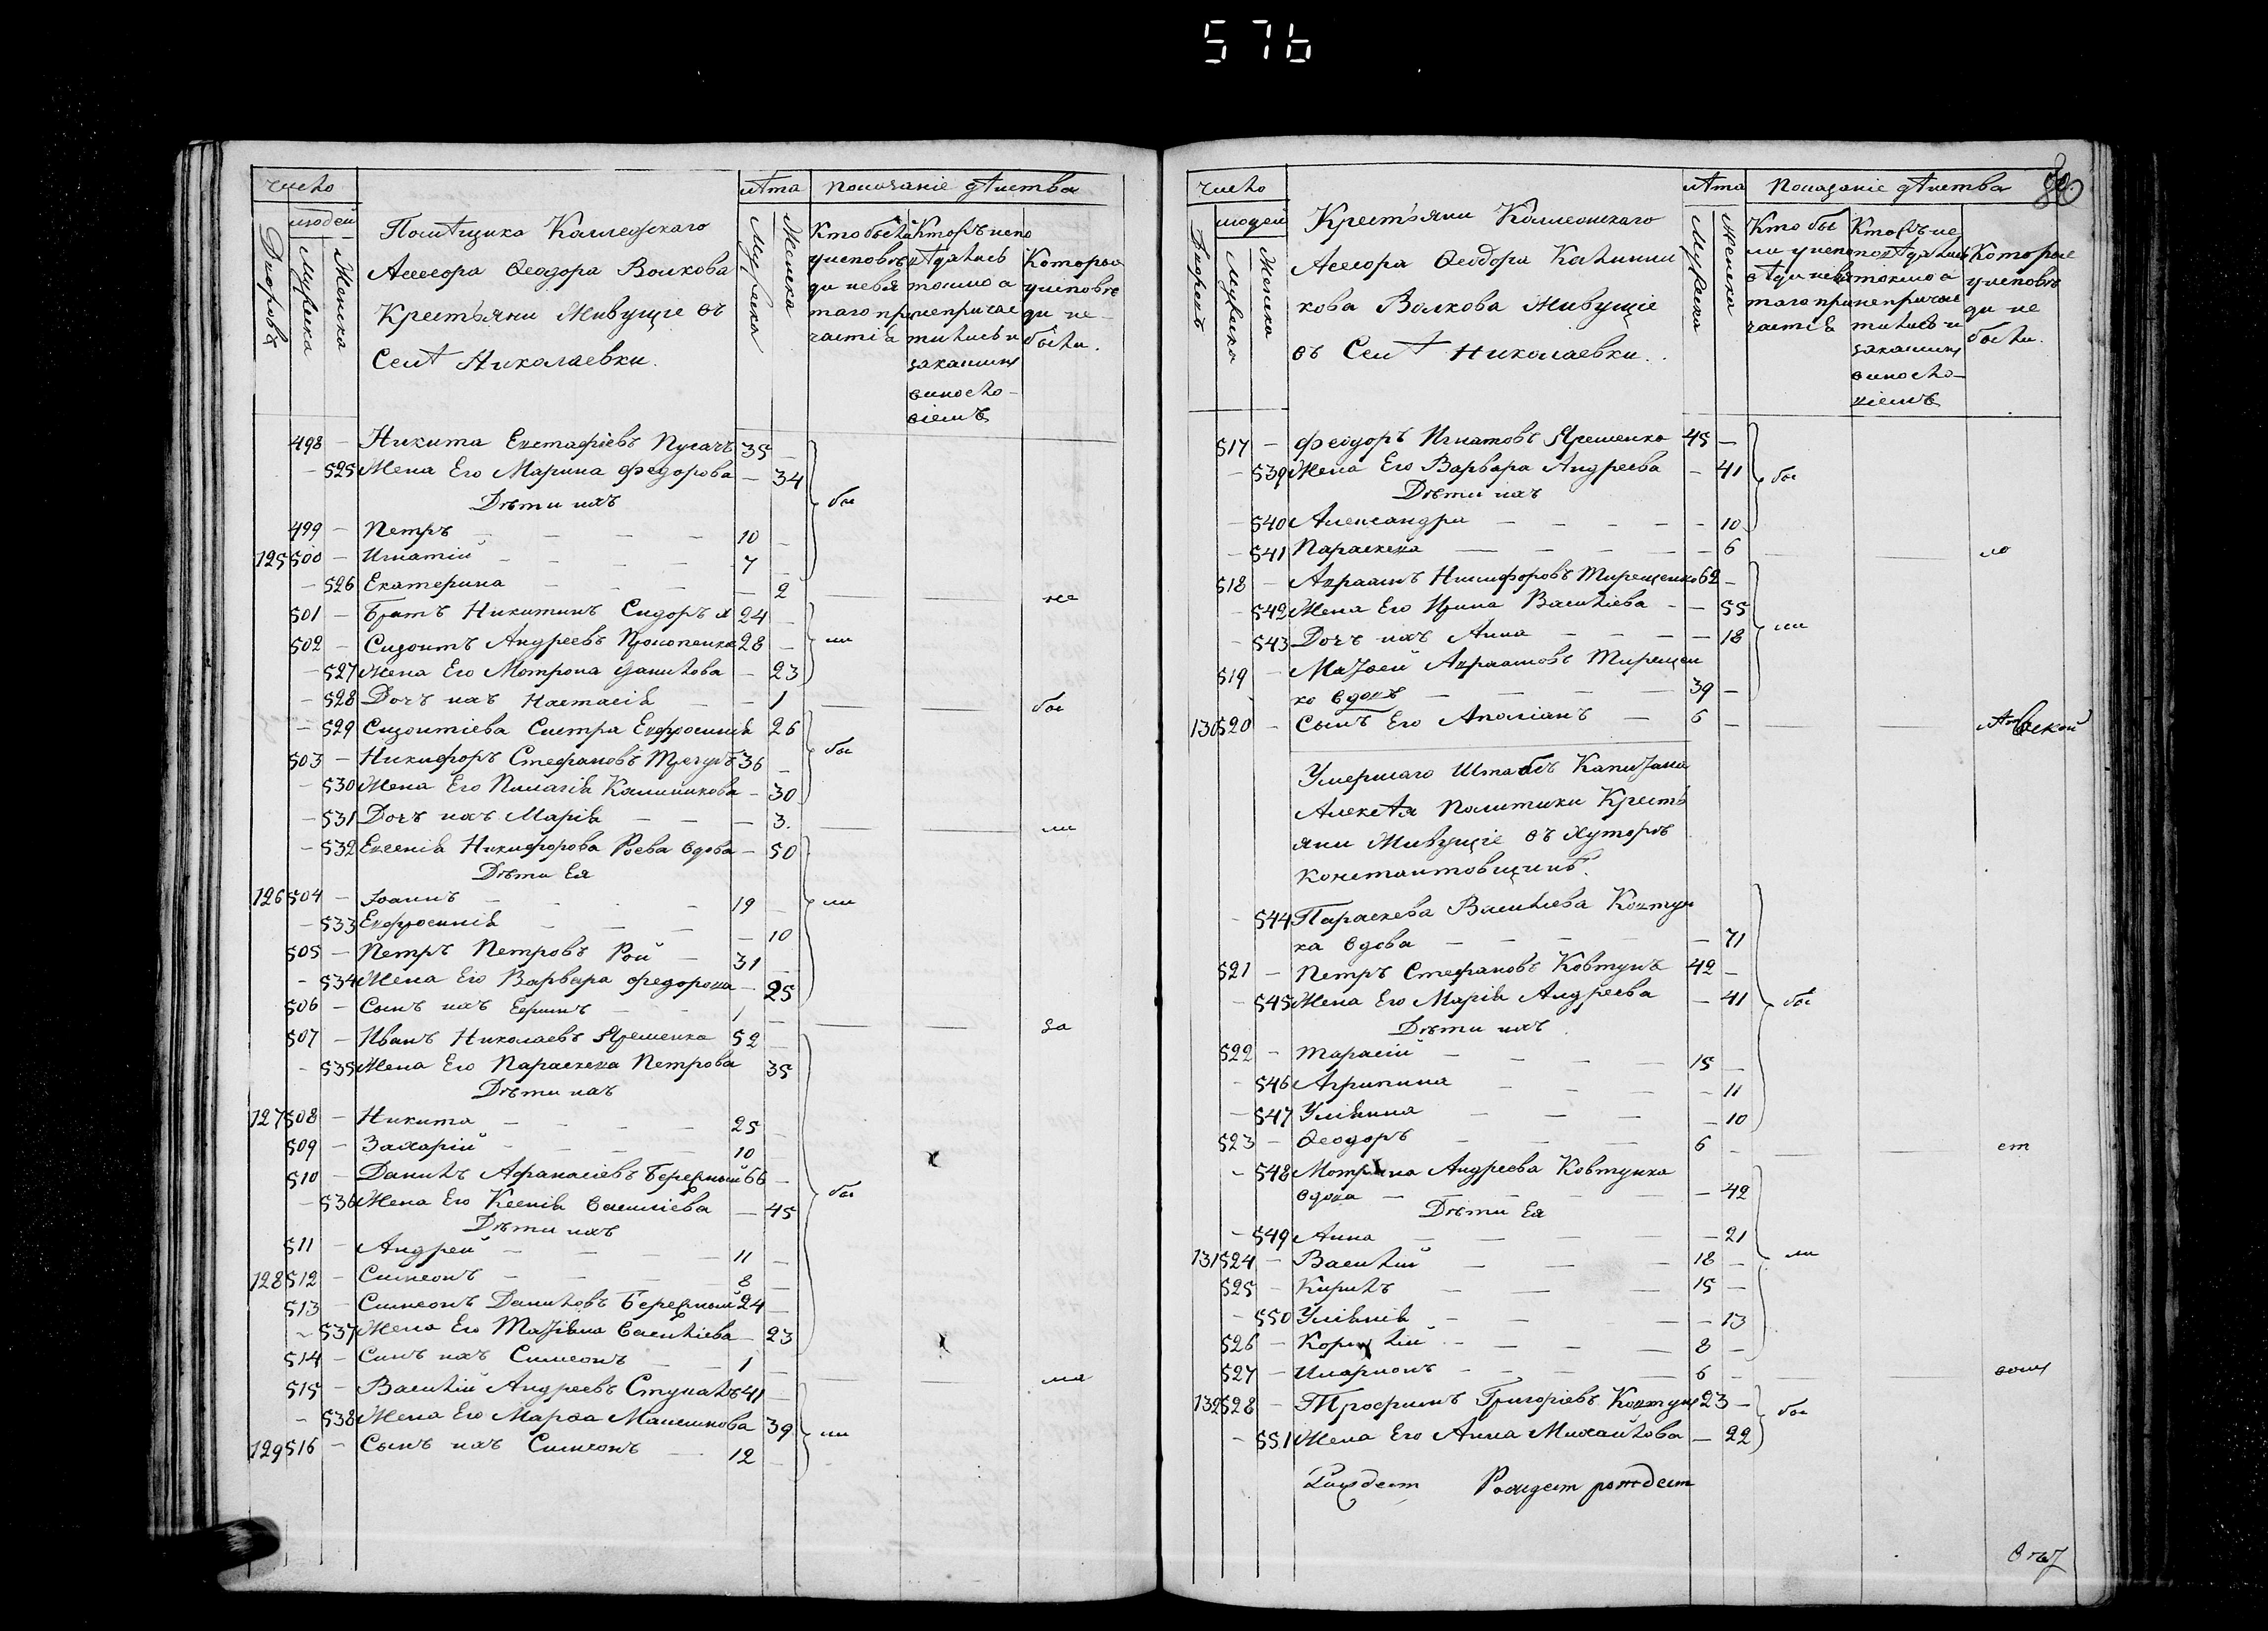 576
число
лѣта
показаніе дѣиства
людей
Дворовъ
Мужеска
Женска
Помѣщика Каллежскаго
Ассесора Ѳеодора Волкова
Крестьяни Живущіе въ
Селѣ Николаевки.
Мужеска
Женска
Кто были
у исповѣ
ди и свя
таго при
частія
Кто исповѣдались
токмо а
непричас
тились и
заканим
виносло-
віемъ
Которыи
у исповѣ
ди не-
были.
498 – Никита Евстафіевъ Пугачъ 35 –
– 525 Жена Его Марина Федорова – 34
Дѣти ихъ
бы
499 – Петръ – – – – 10 –
125 500 – Игнатій – – – – 7 –
– 526 Екатерина – – – – 2
не
501 – Братъ Никитинъ Сидоръ х 24 –
502 – Сизонтъ Андреевъ Прокопенко 28 –
ли
– 527 Жена Его Мотрона Данилова – 23
– 528 Дочъ ихъ Настасія – – 1
бы
– 529 Сизонтіева Систра Евфросинія 26
503 – Никифоръ Стефановъ Трегубъ 36 –
бы
– 530 Жена Его Пилагія Калиникова – 30
– 531 Дочъ ихъ Марія – – – 3.
ли
– 532 Евгенія Никифорова Роева вдова – 50
Дѣти Ея
126 504 – Іоаннъ – – – 19 –
ли
– 533 Евфросинія – – – – 10
505 – Петръ Петровъ Рой – 31 –
– 534 Жена Его Варвара Федорова – 25
506 – Сынъ ихъ Ефимъ – – 1 –
за
507 – Иванъ Николаевъ Яременко 52 –
– 535 Жена Его Параскева Петрова 35
Дѣти ихъ
127 508 – Никита – – – – 25 –
509 – Захарій – – – – 10 –
510 – Данилъ Афанасіевъ Бережный 66 –
бы
– 536 Жена Его Ксенія Василіева – 45
Дѣти ихъ
511 – Андрей – – – – 11 –
128 512 – Симеонъ – – – – 8 –
513 – Симеонъ Даниловъ Бережный 24 –
– 537 Жена Его Татіана Василіева – 23
514 – Синъ ихъ Симеонъ – – 1 –
515 – Василій Андреевъ Ступалъ 41 –
– 538 Жена Его Марѳа Максимова 39
ли
129 516 – Сынъ ихъ Симеонъ – 12 –
число
лѣта
Показаніе дѣиства
людей
Мужеска
Женска
Крестьяни Коллежскаго
Ассесора Ѳеодора Калинни
кова Волкова Живущіе
въ Селѣ Николаевки.
Мужеска
Женска
Кто бы
ли у испо
вѣди и свя
таго при
частія
Кто исповѣдались
токмо а
непричас
тились и
заканим
виносло-
віемъ
Которые
у исповѣ
ди не
были.
517 – Феодоръ Игнатовъ Яременко 45 –
– 539 Жена Его Варвара Андреева – 41
бы
Дѣти ихъ
– 540 Александра – – – – – 10
– 541 Параскева – – – – 6
ло
518 – Авраамъ Никифоровъ Терещенко 62 –
– 542 Жена Его Ирина Василіева – – 55
– 543 Дочъ ихъ Анна – – – – 18
ли
519 – Матѳей Авраамовъ Терещен
ко вдовъ – – – – 39 –
130 520 – Сынъ Его Аполіанъ – 6 –
Умершаго Штабъ Капитана
Алексѣя Политики Кресть
яни Живущіе въ хуторѣ
Константовщинѣ.
– 544 Параскева Василіева Ковтун
ка вдова – – – – – 71
521 – Петръ Стефановъ Ковтунъ 42 –
– 545 Жена Его Марія Андреева – 41
бы
Дѣти ихъ
522 – Тарасій – – – – 15 –
– 546 Агрипина – – – – 11
– 547 Уліяния – – – – 10
523 – Ѳеодоръ – – – 6 –
ст
– 548 Мотрона Андреева Ковтунка
вдова – – – – – 42
Дѣти Ея
– 549 Анна – – – – – 21
131 524 – Василій – – – 18 –
ли
525 – Кирилъ – – – 15 –
– 550 Уліянія – – – – 13
526 – Корнилій – – – – 8 –
527 – Иларионъ – – – 6 –
132 528 – Трофимъ Григоріевъ Ковтун 23 –
бы
– 551 Жена Его Анна Михайлова – 22